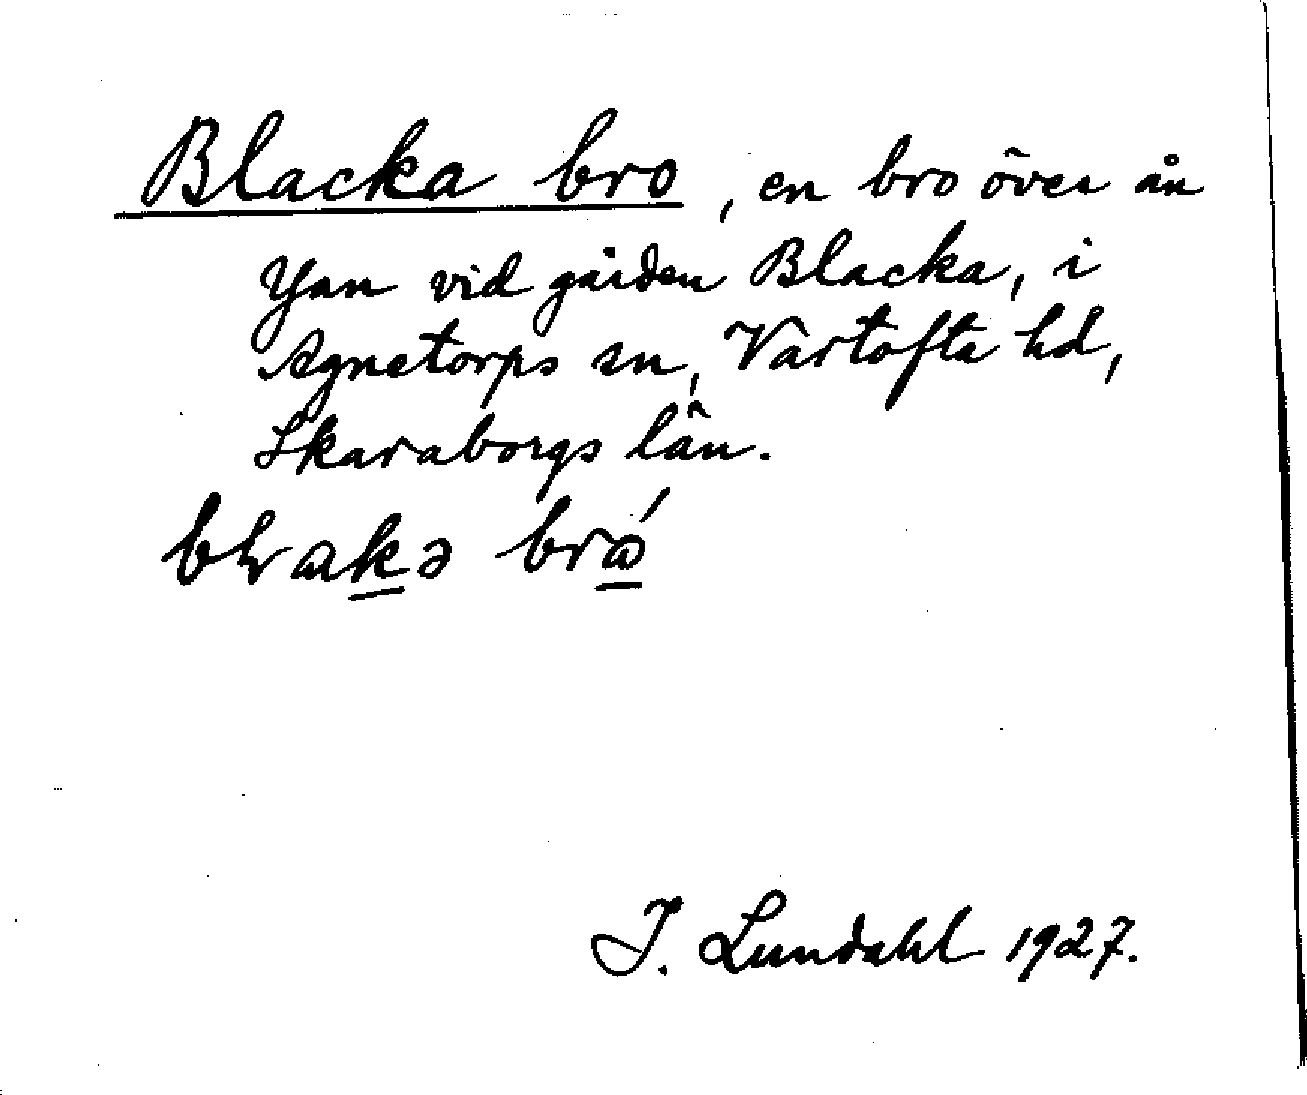 Blacka bro, en bro över ån
Yan vid gården Blacka, i
Agnetorps sn, Vartofta hd,
Skaraborgs län.
brå
I. Lundahl 1927.